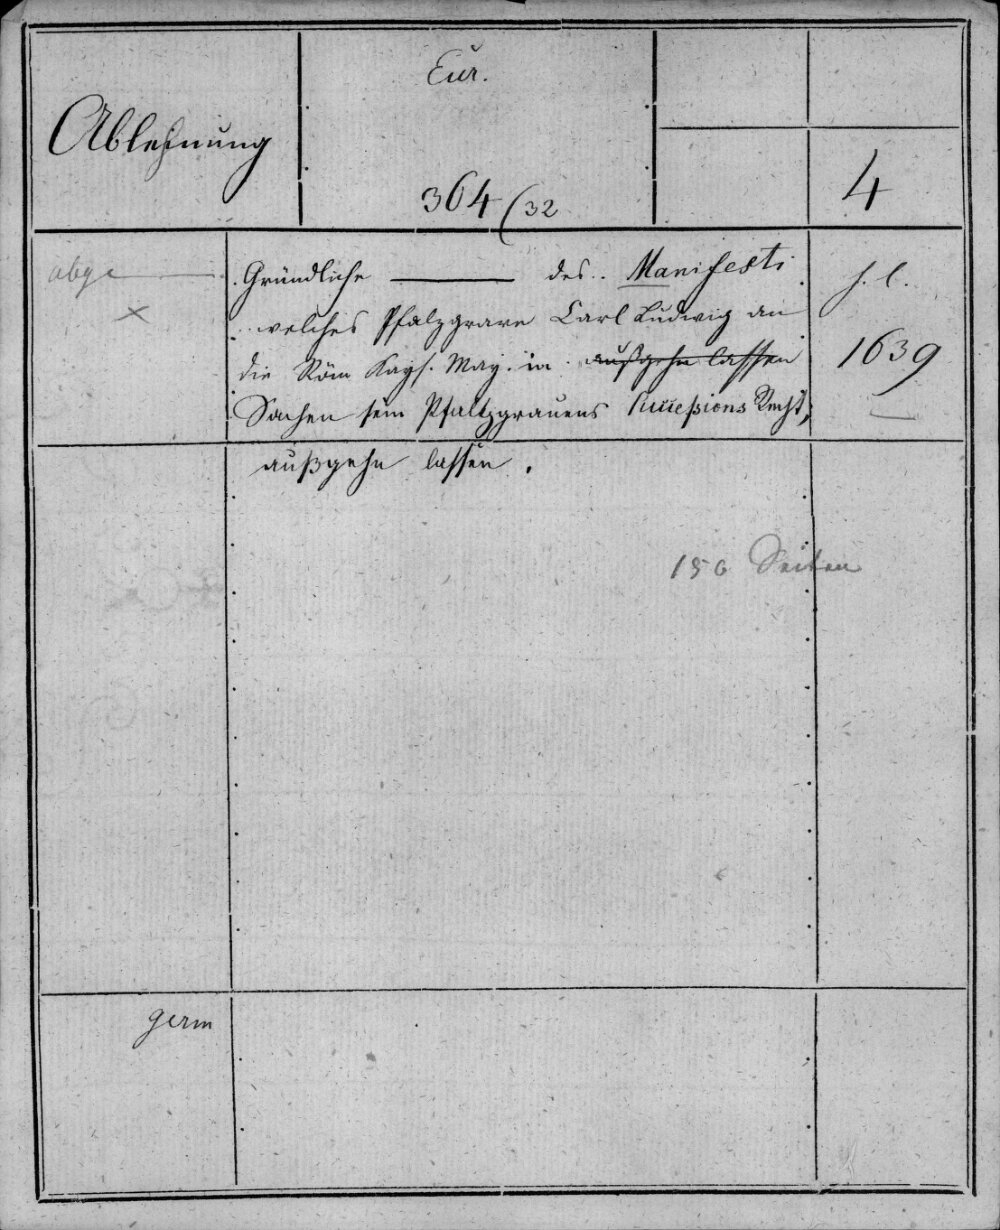 Eur.
Ablehnung
364/32
4
abge
Gründliche ——— des Manifesti
s. l.
welches Pfalzgrave Carl Ludwig an
die Röm Kays. May. in außgehn lassen
1639
Sachen sein Pfaltzgrauens Successions Recht,
außgehn lassen.
156 Seiten
germ